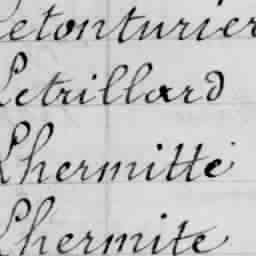 Letonturier
Letrillard
Lhermitte
Lhermite